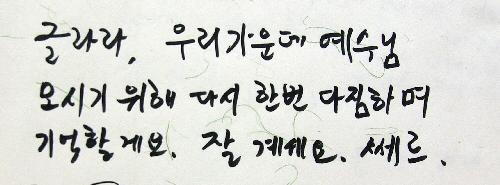 글라라, 우리가운데 예수님
오시기 위해 다시 한번 다짐하며
기억할게요. 잘 계세요. 쎄르.